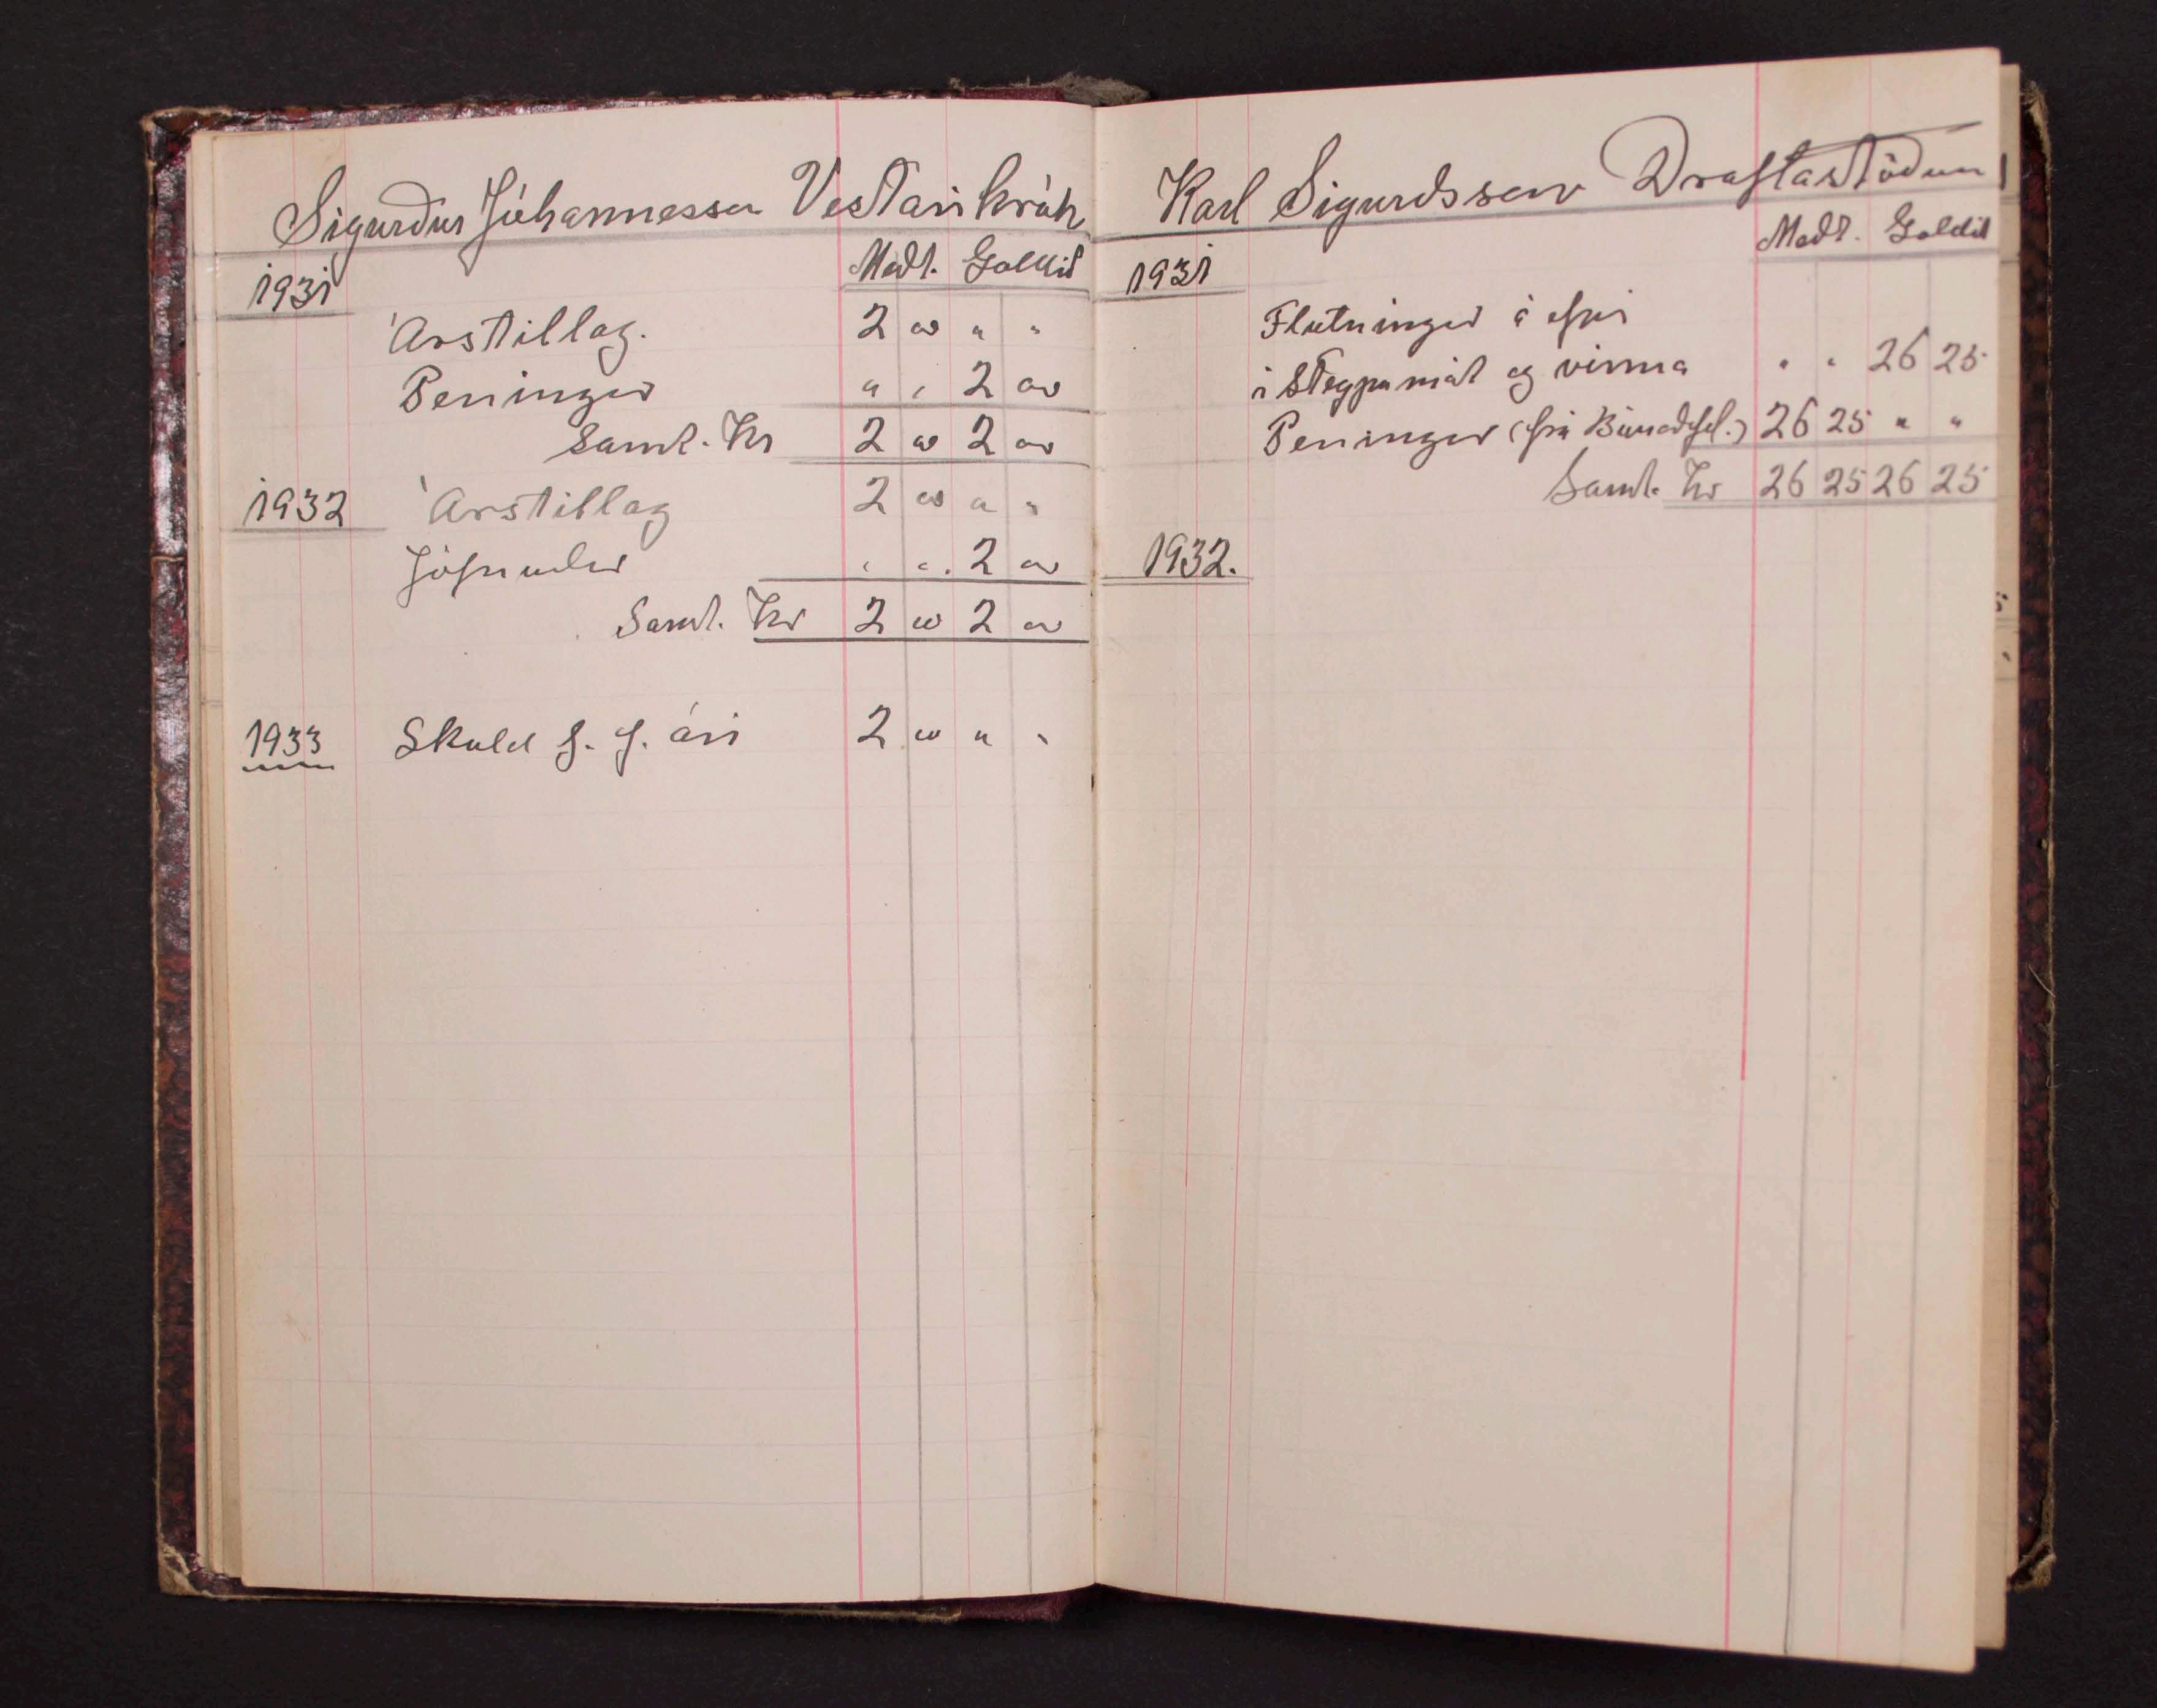 Sigurður Jóhannesson Vestarikrók
Mótt. Goldið
1931
Árstillag. 2 00 " "
Peningar " " 2 00
Samt. Kr 2 00 2 00
1932 Árstillag 2 00 " "
Jöfnuður " " 2 00
Samt. Kr 2 00 2 00
1933 Skuld f. f. ári 2 00 " "
Karl Sigurdsson Draflastöðum
Mótt. Goldið
1931
Flutningur á efni
í steypumót og vinna " " 26 25
Peningar (frá Búnaðfél.) 26 25 " "
Samt. Kr 26 25 26 25
1932.